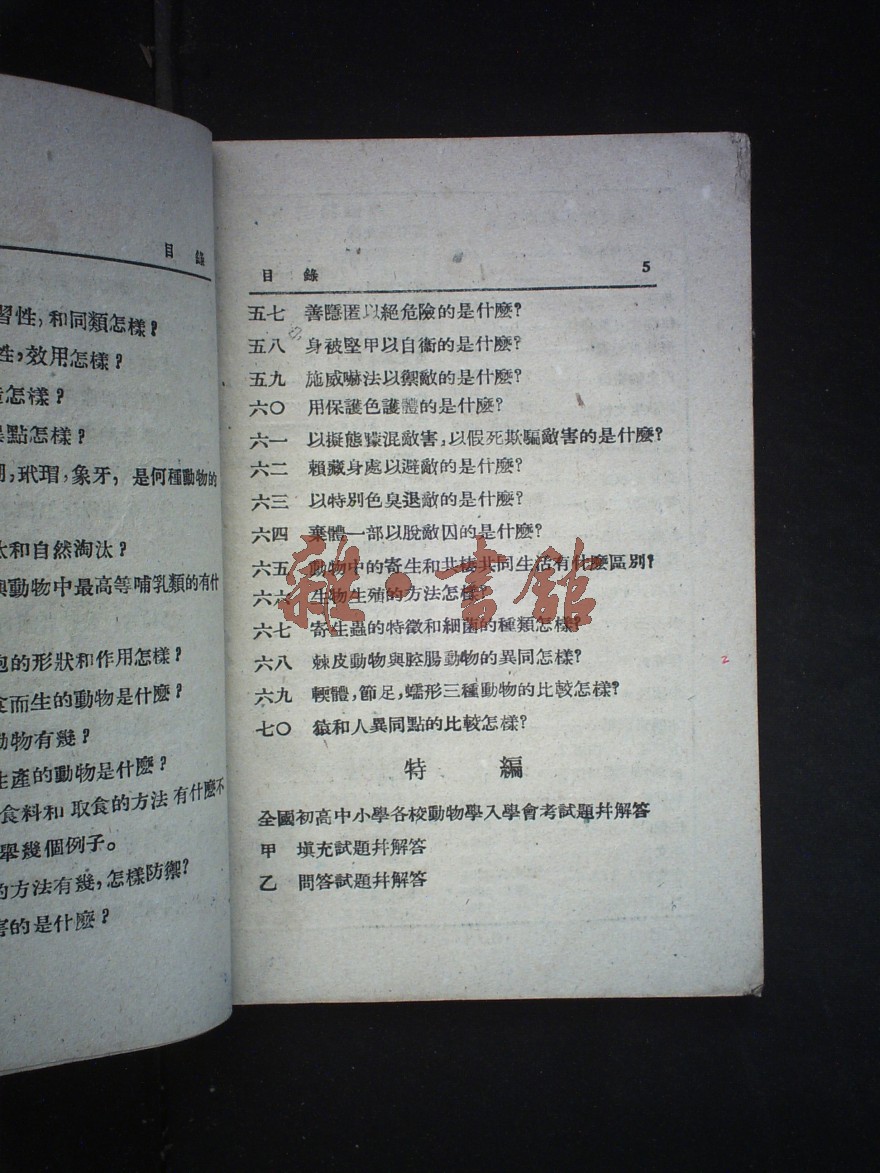 目錄
習性,和同類怎樣?
性,效用怎樣?
怎樣?
點怎樣?
玳瑁,象牙,是何種動物的
汰和自然淘汰?
與動物中最高等哺乳類的有什
胞的形狀和作用怎樣?
食而生的動物是什麼?
動物有幾?
生產的動物是什麼?
食料和取食的方法有什麼不
舉幾個例子。
的方法有幾,怎樣防禦?
害的是什麼?
目錄 5
五七 善隱匿以絕危險的是什麼?
五八 身被堅甲以自衞的是什麼?
五九 施威嚇法以禦敵的是什麼?
六〇 用保護色護體的是什麼?
六一 以擬態矇混敵害,以假死欺騙敵害的是什麼?
六二 賴藏身處以避敵的是什麼?
六三 以特別色臭退敵的是什麼?
六四 棄體一部以脫敵囚的是什麼?
六五 動物中的寄生和共棲共同生活有什麼區別?
六六 生物生殖的方法怎樣?
六七 寄生蟲的特徵和細菌的種類怎樣?
六八 棘皮動物與腔腸動物的異同怎樣?
六九 輭體,節足,蠕形三種動物的比較怎樣?
七〇 猿和人異同點的比較怎樣?
特編
全國初高中小學各校動物學入學會考試題幷解答
甲 塡充試題幷解答
乙 問答試題幷解答
雜·書館